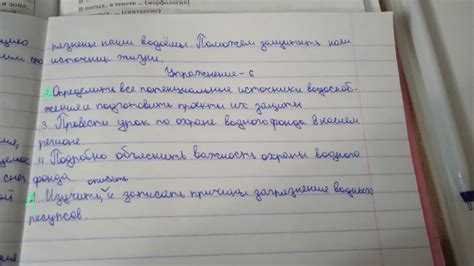 я зона..
В-пятых, в тексте ... (морфология)
(синтаксис)
резнены наши водоёмы. Поможем защитить наш
источник жизни.
Упражнение-6
2. Определить все потенциальные источники водоснаб-
жения и подготовить проекты их защиты
3. Провести урок по охране водного фонда в нашем
регионе.
4. Подробно объяснить важность охраны водного
фонда
описать
1. Изучить, и записать причины загрязнение водных
ресурсов.